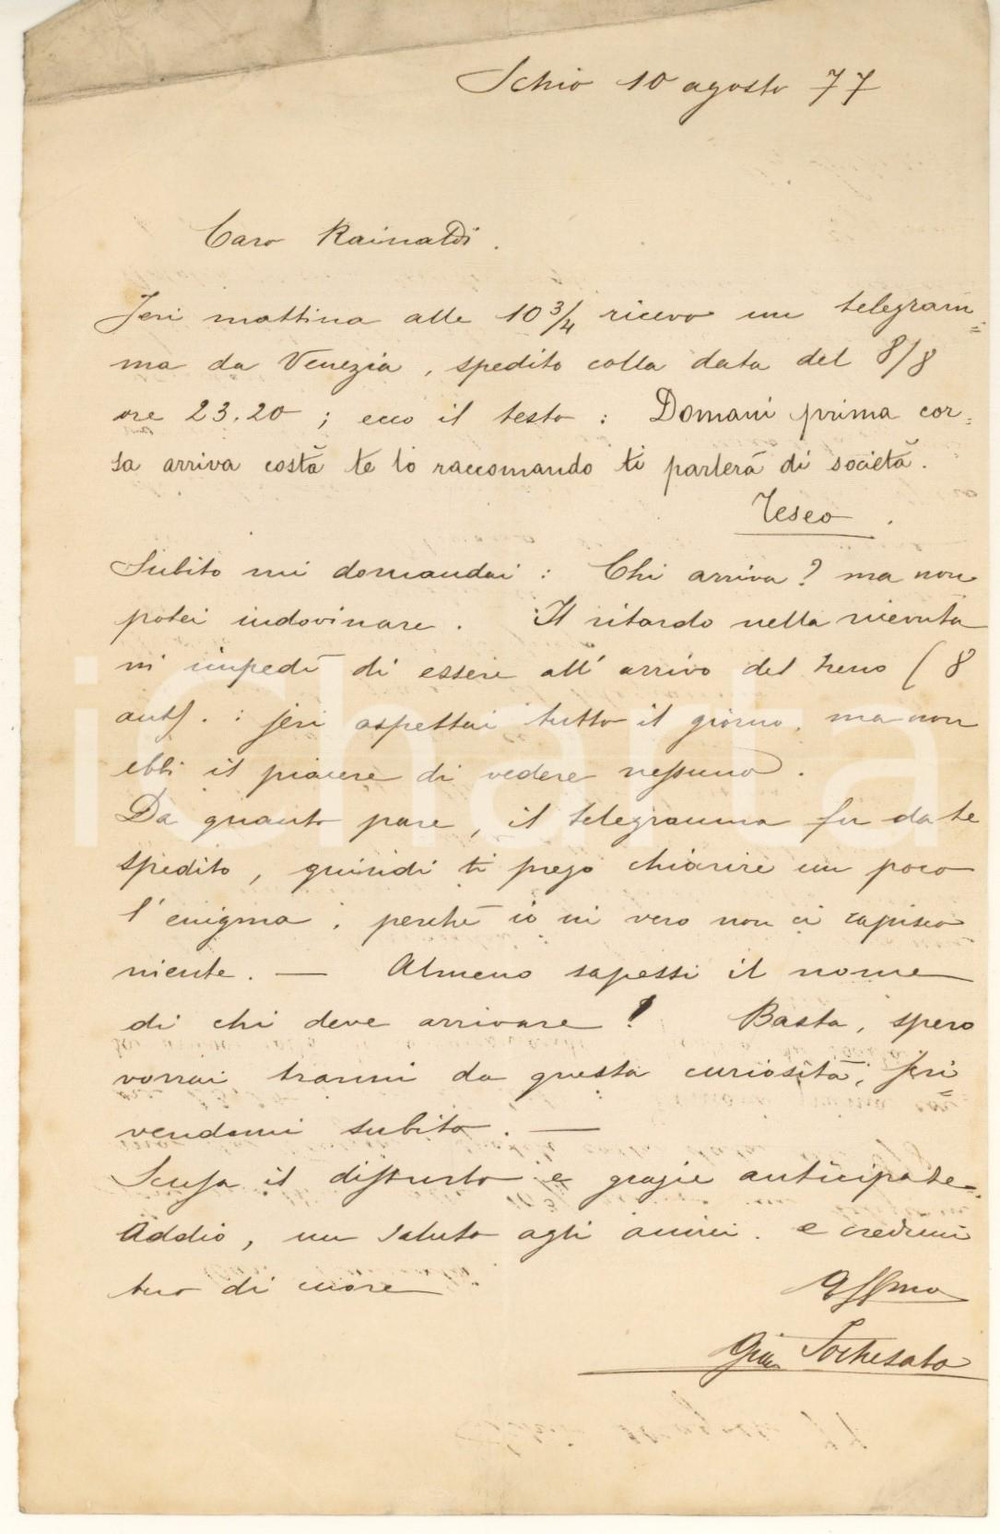 Schio 10 agosto 77
Caro Rainaldi.
Jeri mattina alle 10 3/4 ricevo un telegram=
ma da Venezia, spedito colla data del 8/8
ore 23.20; ecco il testo: Domani prima cor=
sa arriva costà te lo raccomando ti parlerà di società.
Teseo.
Subito mi domandai: Chi arriva? ma non
potei indovinare. Il ritardo nella ricevuta
m'impedì di essere all'arrivo del treno (8
ant). : jeri aspettai tutto il giorno, ma non
ebbi il piacere di vedere nessuno.
Da quanto pare, il telegramma fu da te
spedito, quindi ti prego chiarire un poco
l'enigma; perchè io in vero non ci capisco
niente. — Almeno sapessi il nome
di chi deve arrivare! Basta, spero
vorrai trarmi da questa curiosità, scri=
vendomi subito. —
Scusa il disturbo e grazie anticipate.
Addio, un saluto agli amici. e credimi
tuo di cuore
Affmo
Gio Sochesato
iCharta